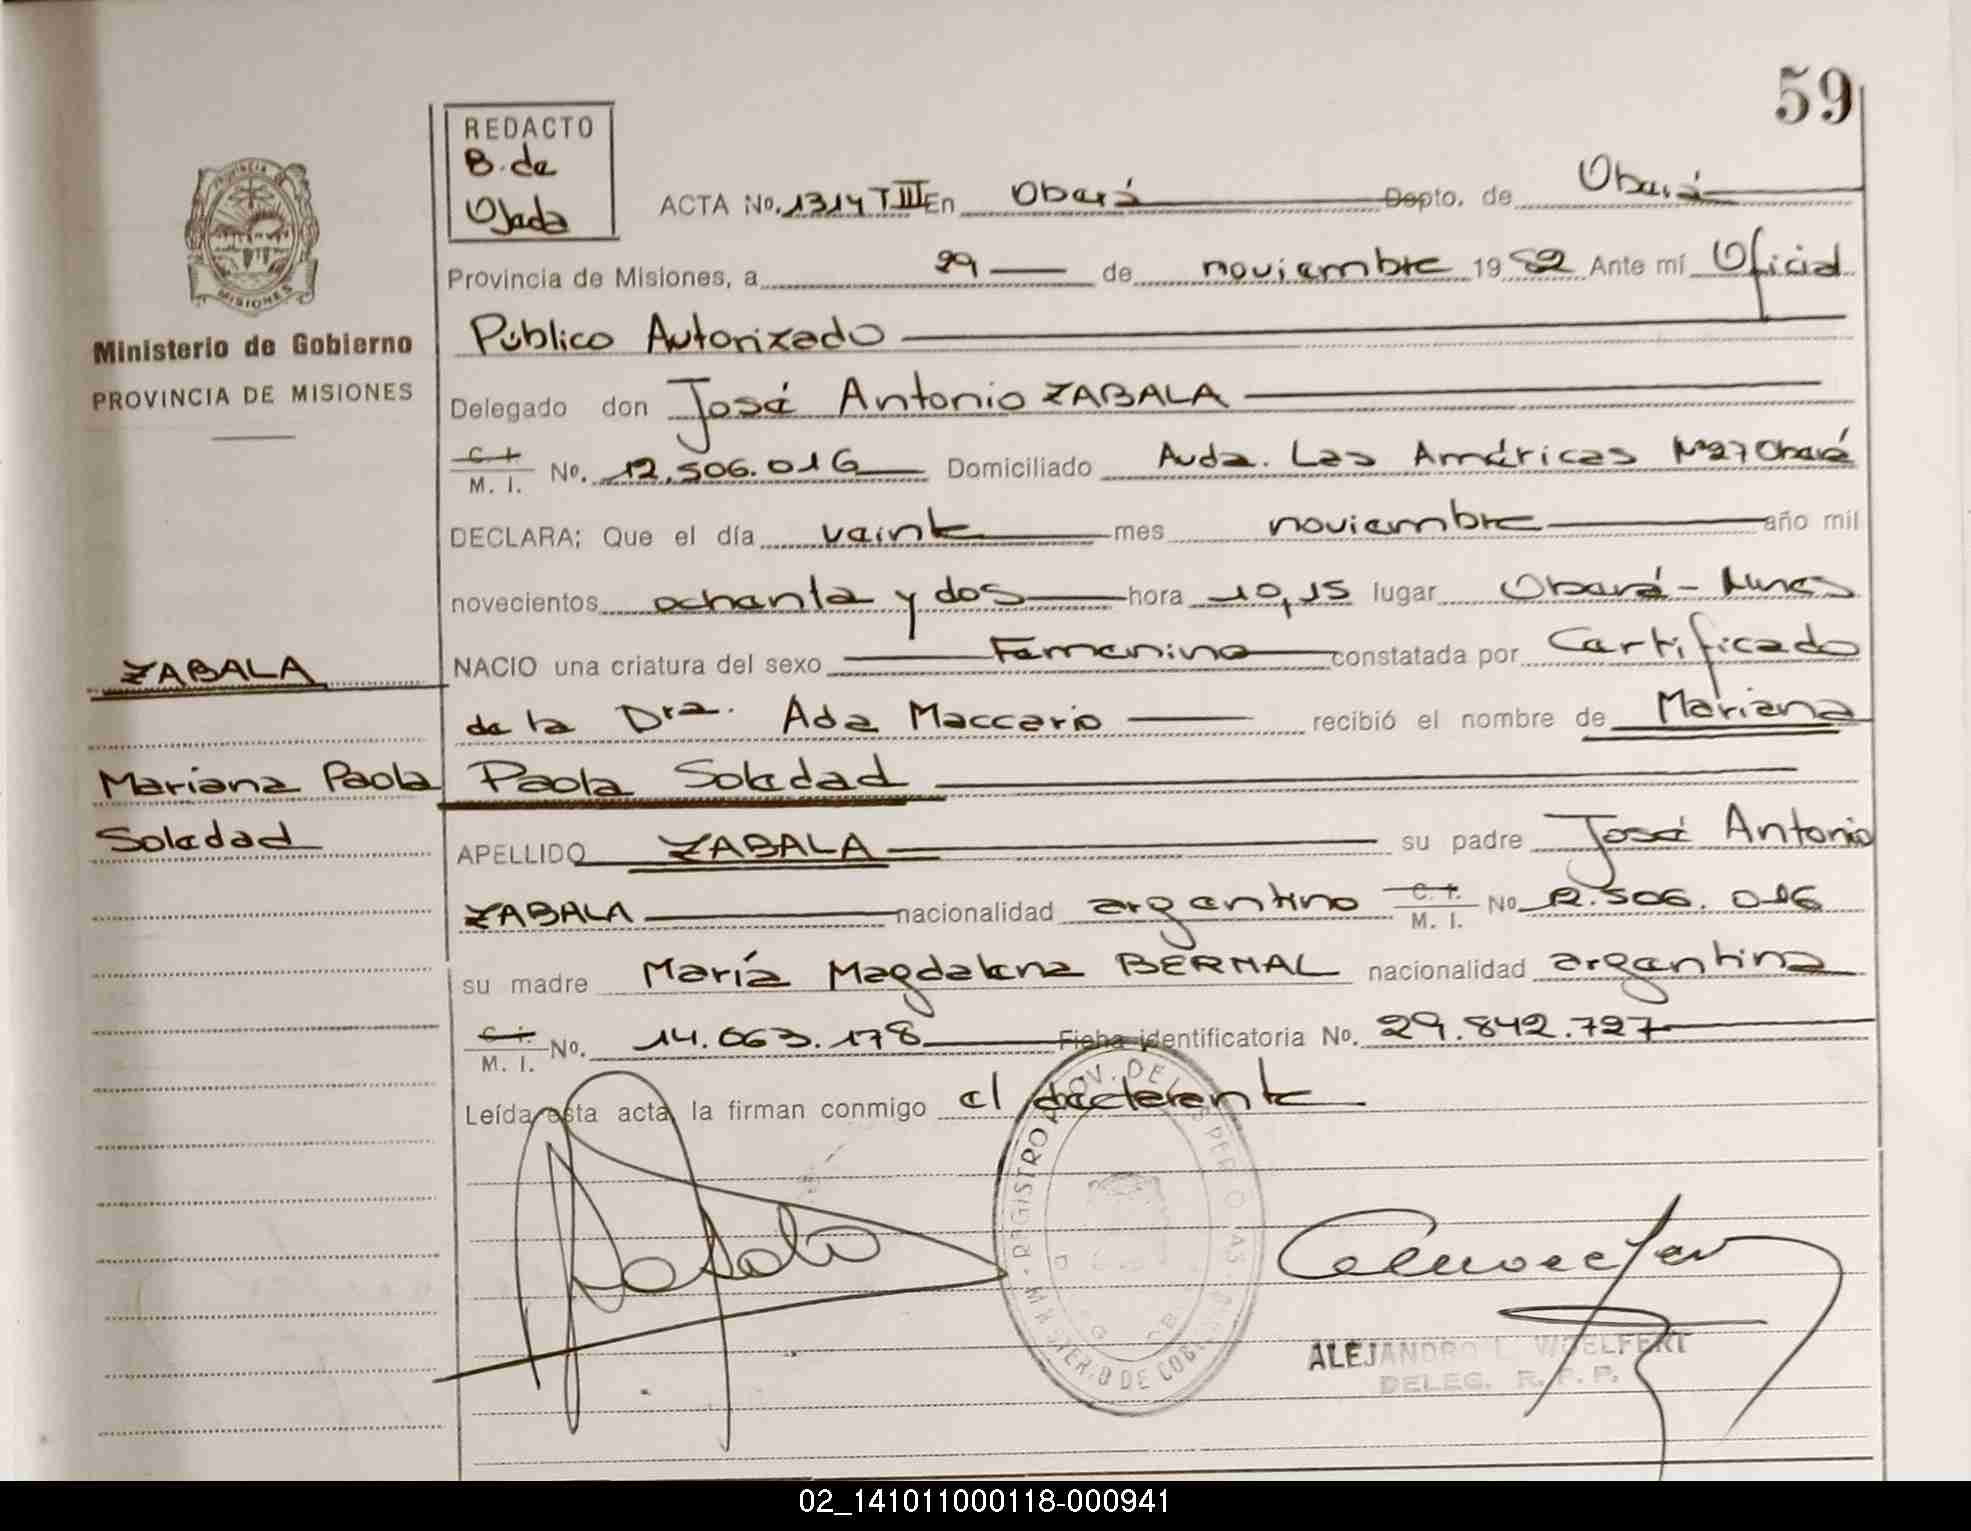 59
REDACTO
B. de
Ojeda
ACTA No. 1314 T III En Oberá Depto. de Oberá
Provincia de Misiones, a 29 de noviembre 19 82 Ante mí Oficial
Público Autorizado
Delegado don José Antonio ZABALA
C. I. M. I. No. 12.506.016 Domiciliado Avda. Las Américas Nº27 Oberá
DECLARA; Que el día veinte mes noviembre año mil
novecientos ochenta y dos hora 10,15 lugar Oberá - Mnes
NACIO una criatura del sexo Femenino constatada por Certificado
de la Dra. Ada Maccario recibió el nombre de Mariana
Paola Soledad
APELLIDO ZABALA su padre José Antonio
ZABALA nacionalidad argentino C. I. M. I. No 12.506.016
su madre María Magdalena BERNAL nacionalidad argentina
C. I. M. I. No. 14.063.178 Ficha identificatoria No. 29.842.727
Leída esta acta, la firman conmigo el declarante
PROVINCIA DE
MISIONES
Ministerio de Gobierno
PROVINCIA DE MISIONES
ZABALA
Mariana Paola
Soledad
REGISTRO PROV. DE LAS PERSONAS
MINISTERIO DE GOBIERNO
ALEJANDRO L. WOELFERT
DELEG. R. P. P.
02_141011000118-000941